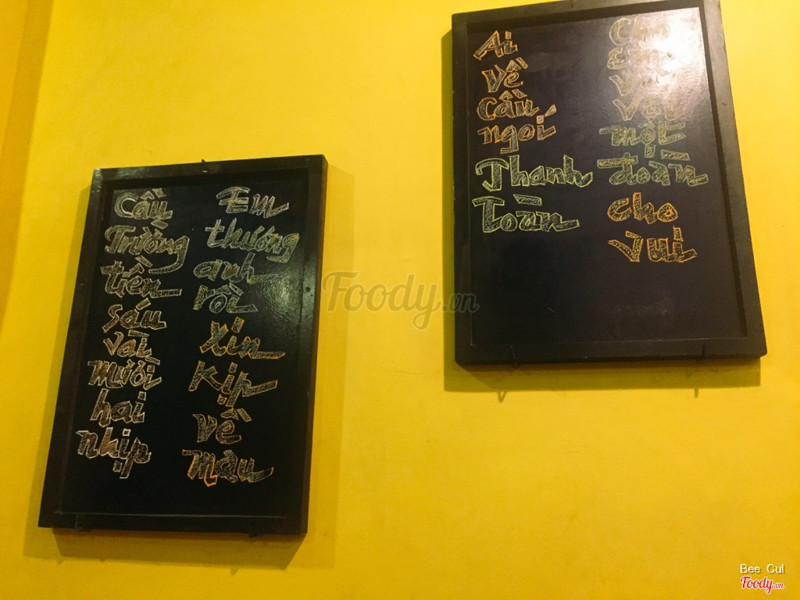 Cầu
Trường
tiền
sáu
vài
mười
hai
nhịp
Em
thướng
anh
rồi
xin
kịp
về
màu
Ai
Về
Cầu
ngói
Thanh
Toàn
Cho
em
về
với
một
đoàn
cho
vui
Foody.vn
Bee Cul
Foody.vn